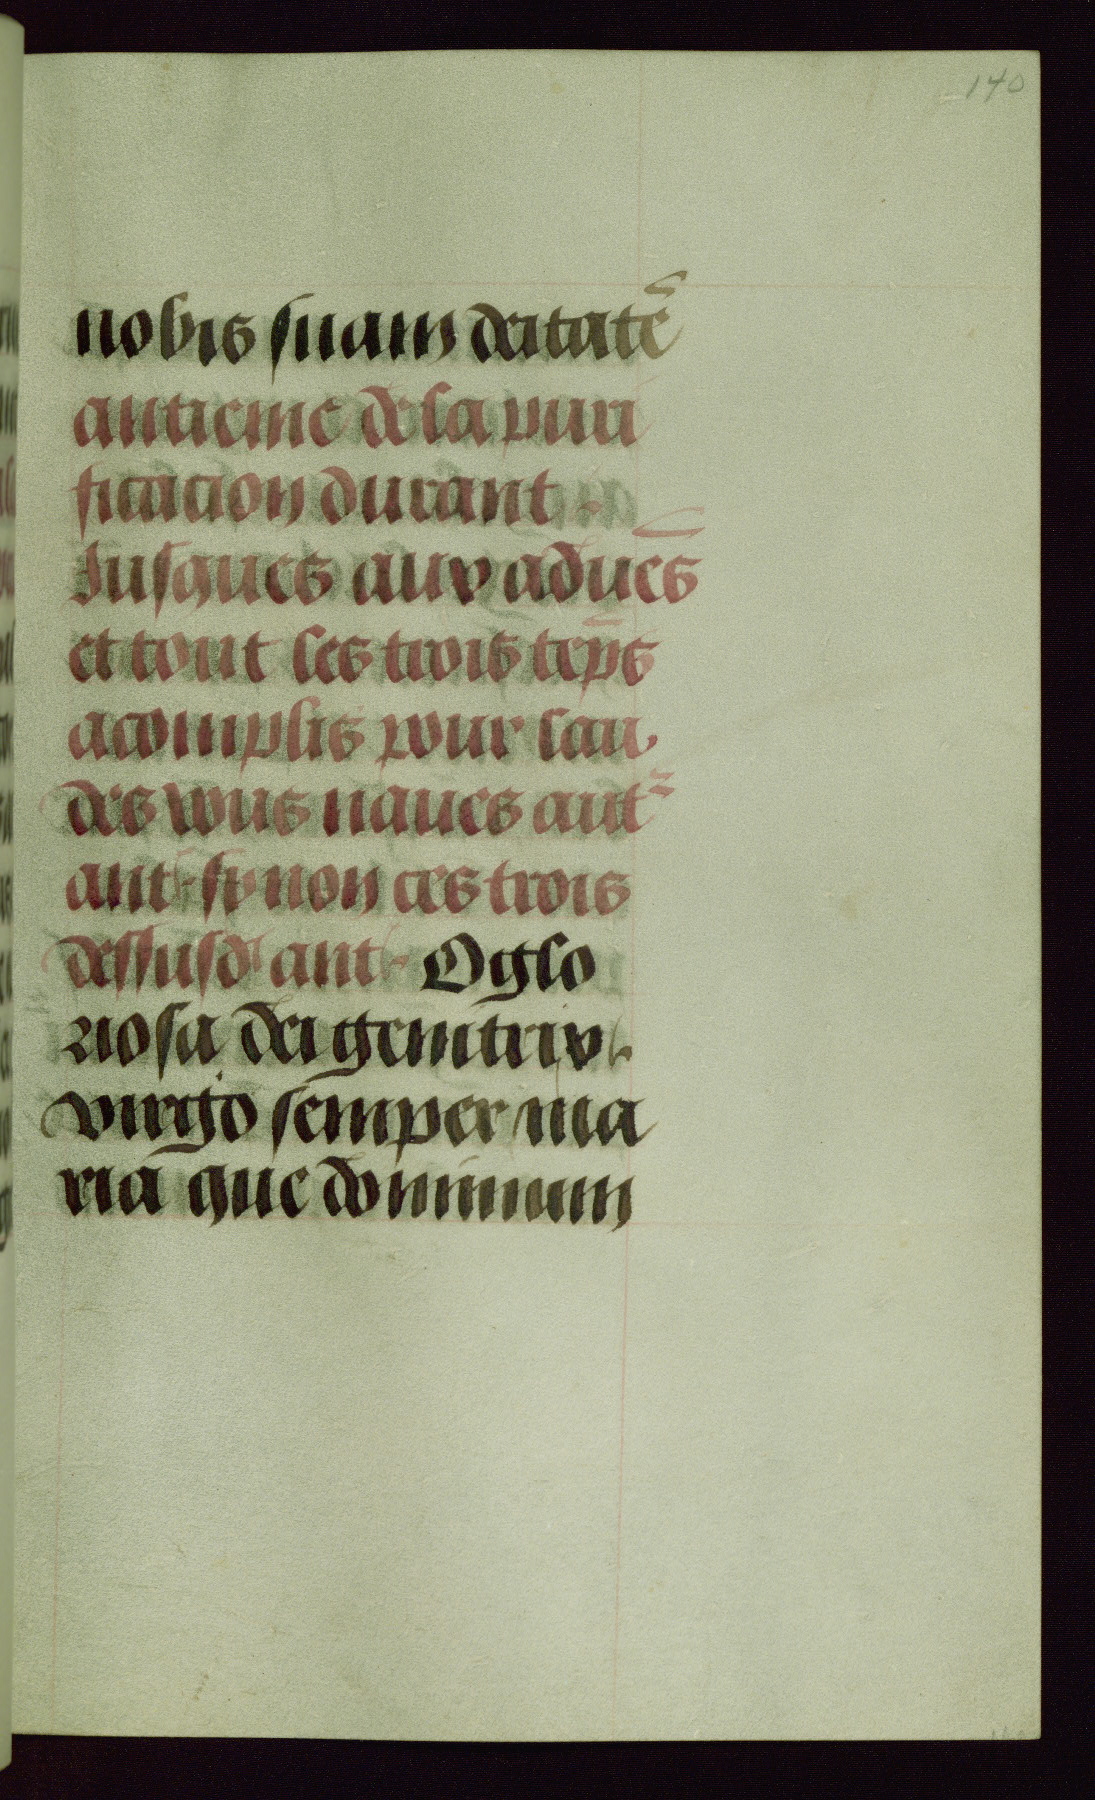 140
nobis suam deitatē
antieme de la puri
ficacion durant -
Jusques aux aduēs
et tout les trois tēps
acomplis pour lau
des vous naues aut̄
ant - sy non ces trois
dessusd ant - O glo
riosa dei genitrix
virgo semper ma
ria que dominum